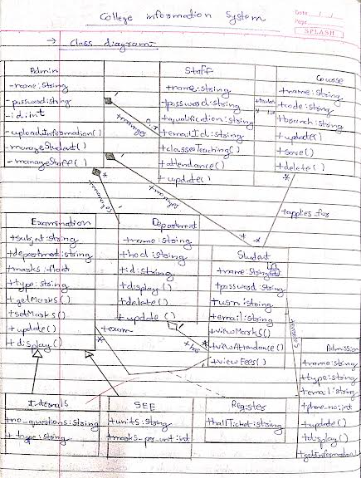 College information System
Date / /
Page
SPLASH
→ Class diagram
Admin
-name:string
-password:string
-id:int
-uploadInformation()
-manageStudent()
-manageStaff()
Staff
+name:string
-password:string
+qualification:string
+emailId:string
+classesTeaching()
+attendance()
+update()
Course
+name:string
+code:string
+branch:string
+update()
+save()
+delete()
+applies for
Examination
+subject:string
+department:string
+marks:float
+type:string
+getMarks()
+setMarks()
+update()
+display()
Department
+name:string
+hod:string
+id:string
+display()
+delete()
+update()
Student
+name:string
+password:string
+usn:string
+email:string
+viewMarks()
+viewAttendance()
+viewFees()
+exam
Admission
+name:string
+type:string
+email:string
+phone-no:int
+update()
+display()
+getInformation()
Internals
+no-questions:string
+type:string
SEE
+units:string
+marks-per-unit:int
Register
+hallticket:string